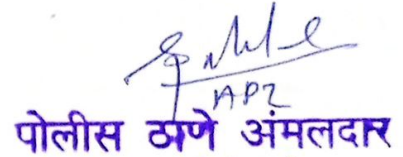 API
पोलीस ठाणे अंमलदार